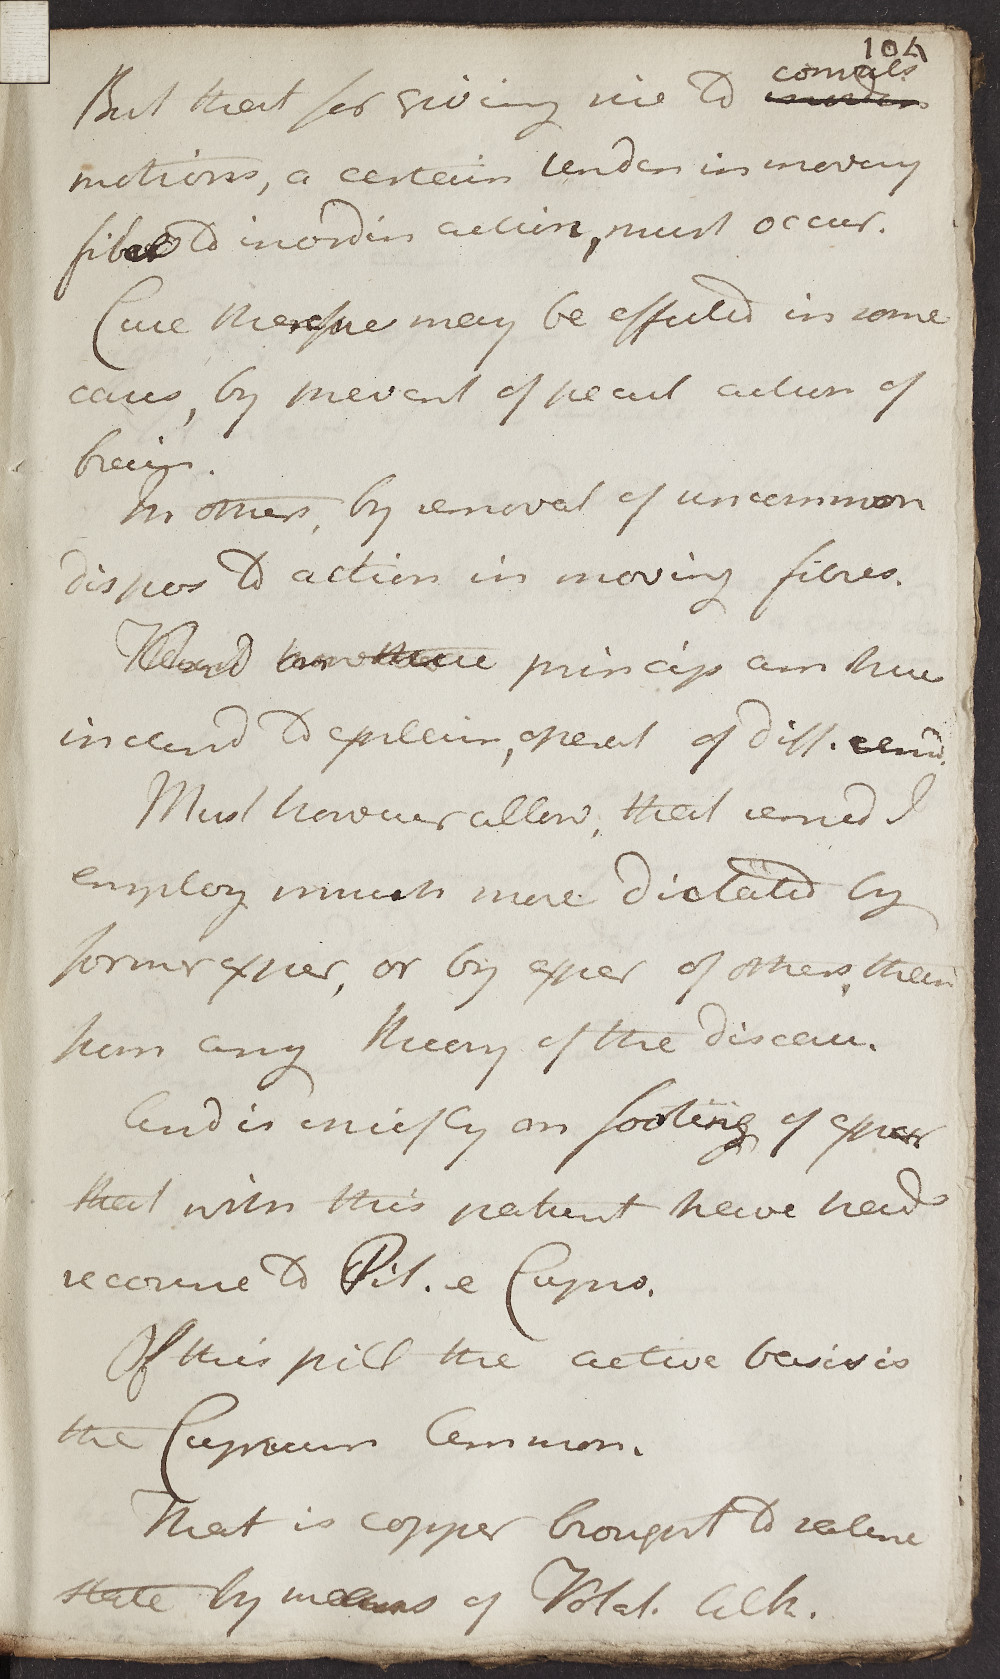 104
convuls
But that for giving rise to
motions, a certain tenden in moving
fibres to inordin action, must occur.
Cure therefore may be effected in some
cases, by prevent of pecul action of
brain.
In others, by removal of uncommon
dispos to action in moving fibres.
princip am here
inclind to explain, operat of diff.
Must however allow, that remed I
employ much more dictated by
former exper, or by exper of others, than
from any theory of the disease.
And is chiefly on footing of exper
that with this patient have had
recourse to Pil. e Cupro.
Of this pill the active basis is
the Cuprum Ammon.
That is copper brought to saline
state by means of Volat. Alk.